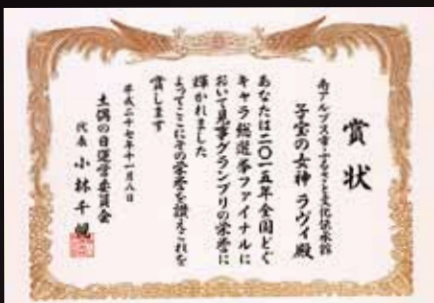 賞状
南アルプス市ふるさと文化伝承館
子宝の女神 ラヴィ殿
あなたは二〇一五年全国どぐ
キャラ総選挙ファイナルに
おいて見事グランプリの栄誉に
輝かれました
よってここにその栄誉を讃えこれを
賞します
平成二十七年十一月八日
土偶の日運営委員会
代表 小林千